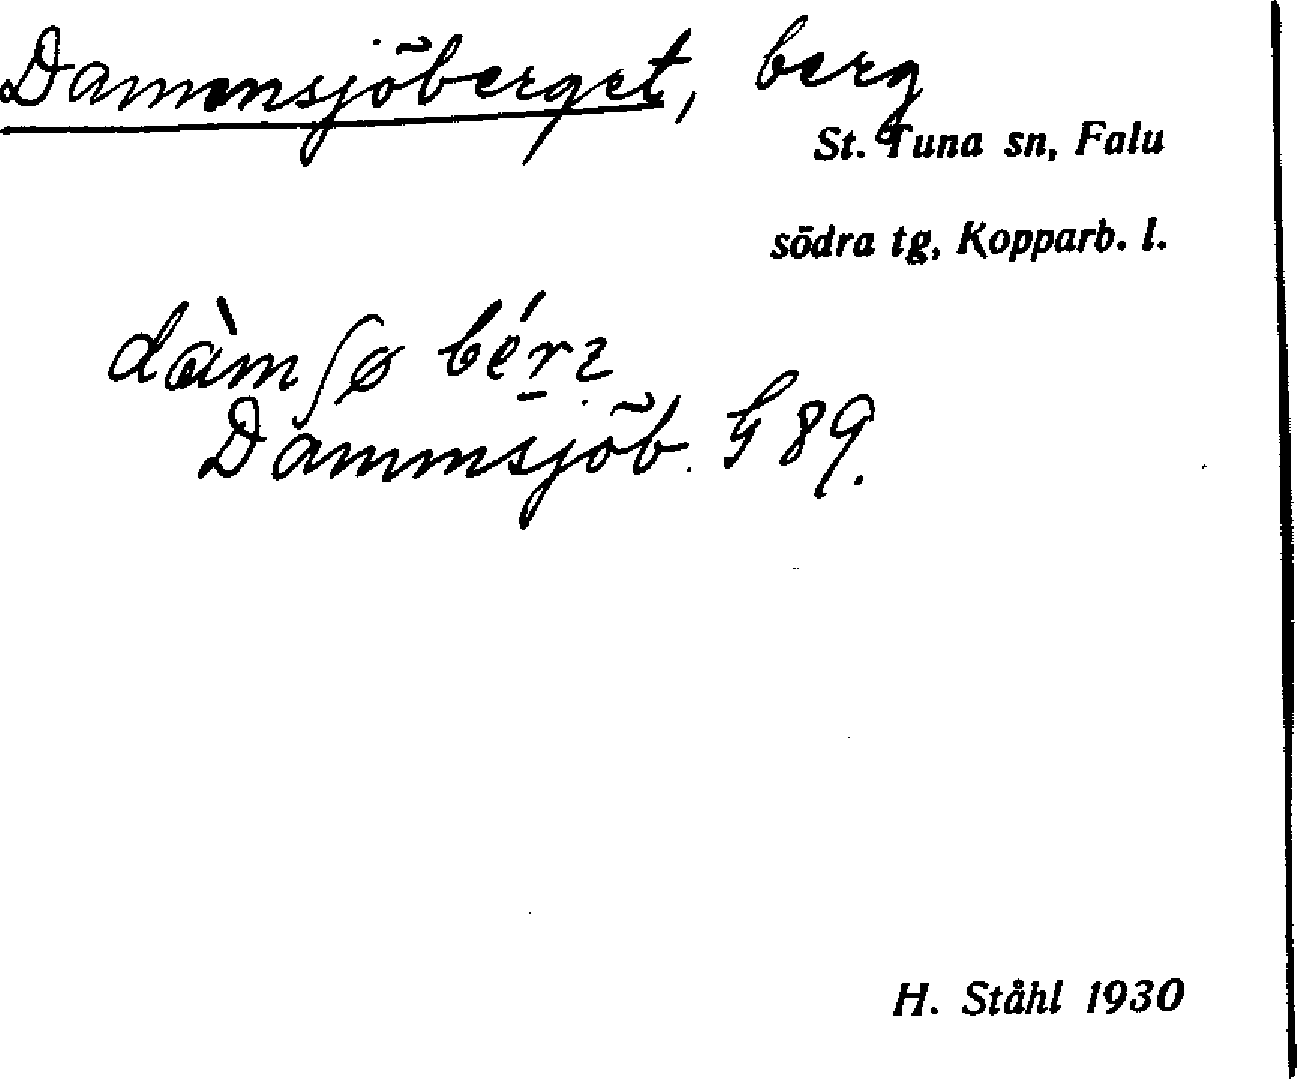 Dammsjöberget, berg
St. Tuna sn, Falu
södra tg, Kopparb. l.
dàmʃø bérz
Dammsjöb. G 89.
H. Ståhl 1930